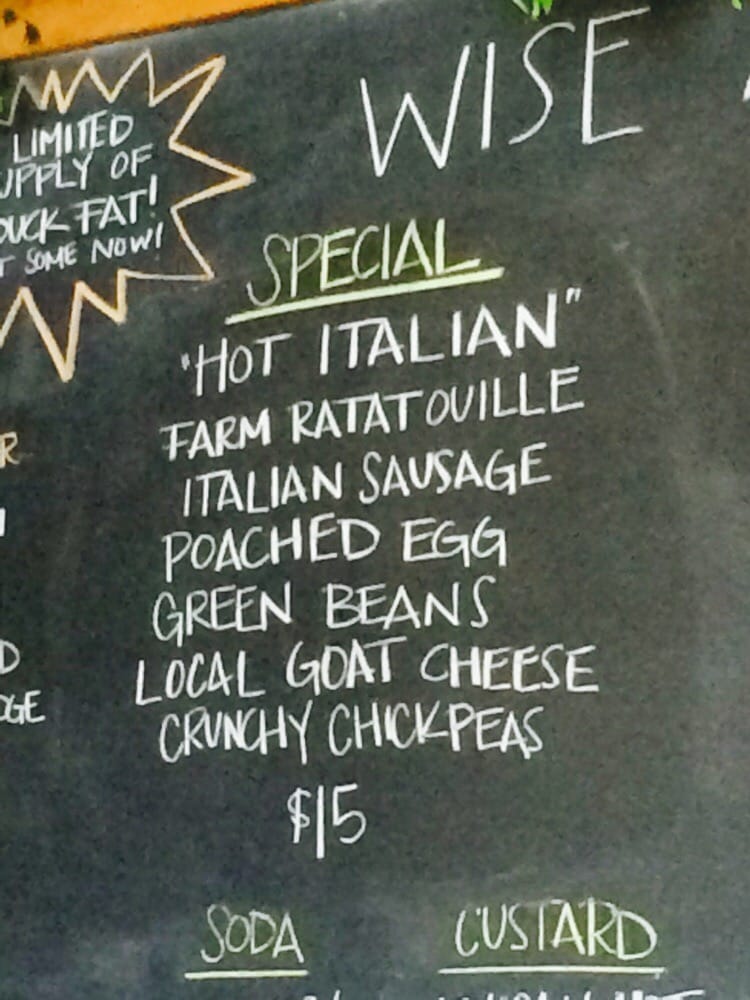 WISE
LIMITED
UPPLY OF
DUCK FAT!
T SOME NOW!
SPECIAL
"HOT ITALIAN"
FARM RATATOUILLE
ITALIAN SAUSAGE
POACHED EGG
GREEN BEANS
LOCAL GOAT CHEESE
CRUNCHY CHICKPEAS
$15
R
D
DGE
SODA
CUSTARD